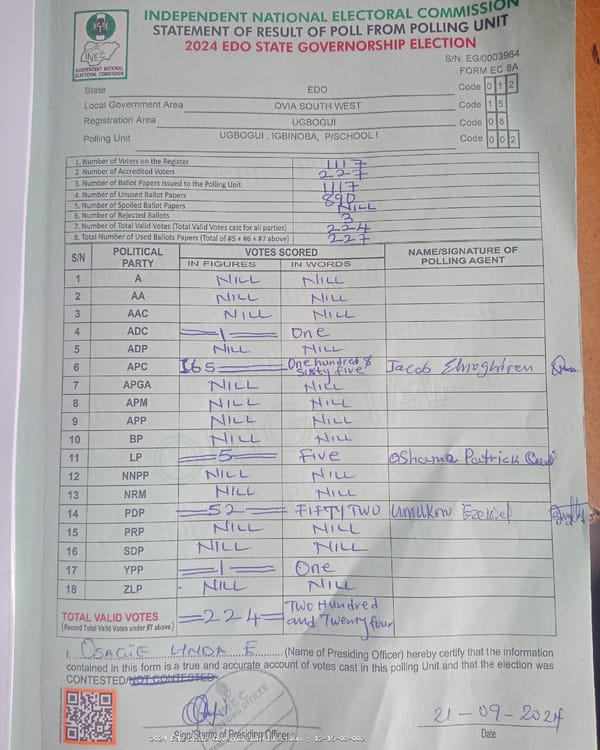 INDEPENDENT NATIONAL ELECTORAL COMMISSION
STATEMENT OF RESULT OF POLL FROM POLLING UNIT
2024 EDO STATE GOVERNORSHIP ELECTION
INEC
INDEPENDENT NATIONAL ELECTORAL COMMISSION
S/N: EG/0003964
FORM EC 8A
State EDO Code 0 1 2
Local Government Area OVIA SOUTH WEST Code 1 5
Registration Area UGBOGUI Code 0 8
Polling Unit UGBOGUI, IGBINOBA, P/SCHOOL I Code 0 0 2
1. Number of Voters on the Register 1117
2. Number of Accredited Voters 227
3. Number of Ballot Papers Issued to the Polling Unit 1117
4. Number of Unused Ballot Papers 890
5. Number of Spoiled Ballot Papers NILL
6. Number of Rejected Ballots 3
7. Number of Total Valid Votes (Total Valid Votes cast for all parties) 224
8. Total Number of Used Ballots Papers (Total of #5 + #6 + #7 above) 227
S/N POLITICAL PARTY VOTES SCORED NAME/SIGNATURE OF POLLING AGENT
IN FIGURES IN WORDS
1 A NILL NILL
2 AA NILL NILL
3 AAC NILL NILL
4 ADC =1= One
5 ADP NILL NILL
6 APC 165= One hundred & sixty five Jacob
7 APGA NILL NILL
8 APM NILL NILL
9 APP NILL NILL
10 BP NILL NILL
11 LP =5= Five Oshama Patrick
12 NNPP NILL NILL
13 NRM NILL NILL
14 PDP =52= FIFTY TWO
15 PRP NILL NILL
16 SDP NILL NILL
17 YPP =1= One
18 ZLP NILL NILL
TOTAL VALID VOTES =224= Two Hundred and Twenty four
(Record Total Valid Votes under #7 above)
I, OSAGIE LINDA E (Name of Presiding Officer) hereby certify that the information
contained in this form is a true and accurate account of votes cast in this polling Unit and that the election was
CONTESTED/NOT CONTESTED
INEC
PRESIDING OFFICER
21-09-2024
Sign/Stamp of Presiding Officer
Date